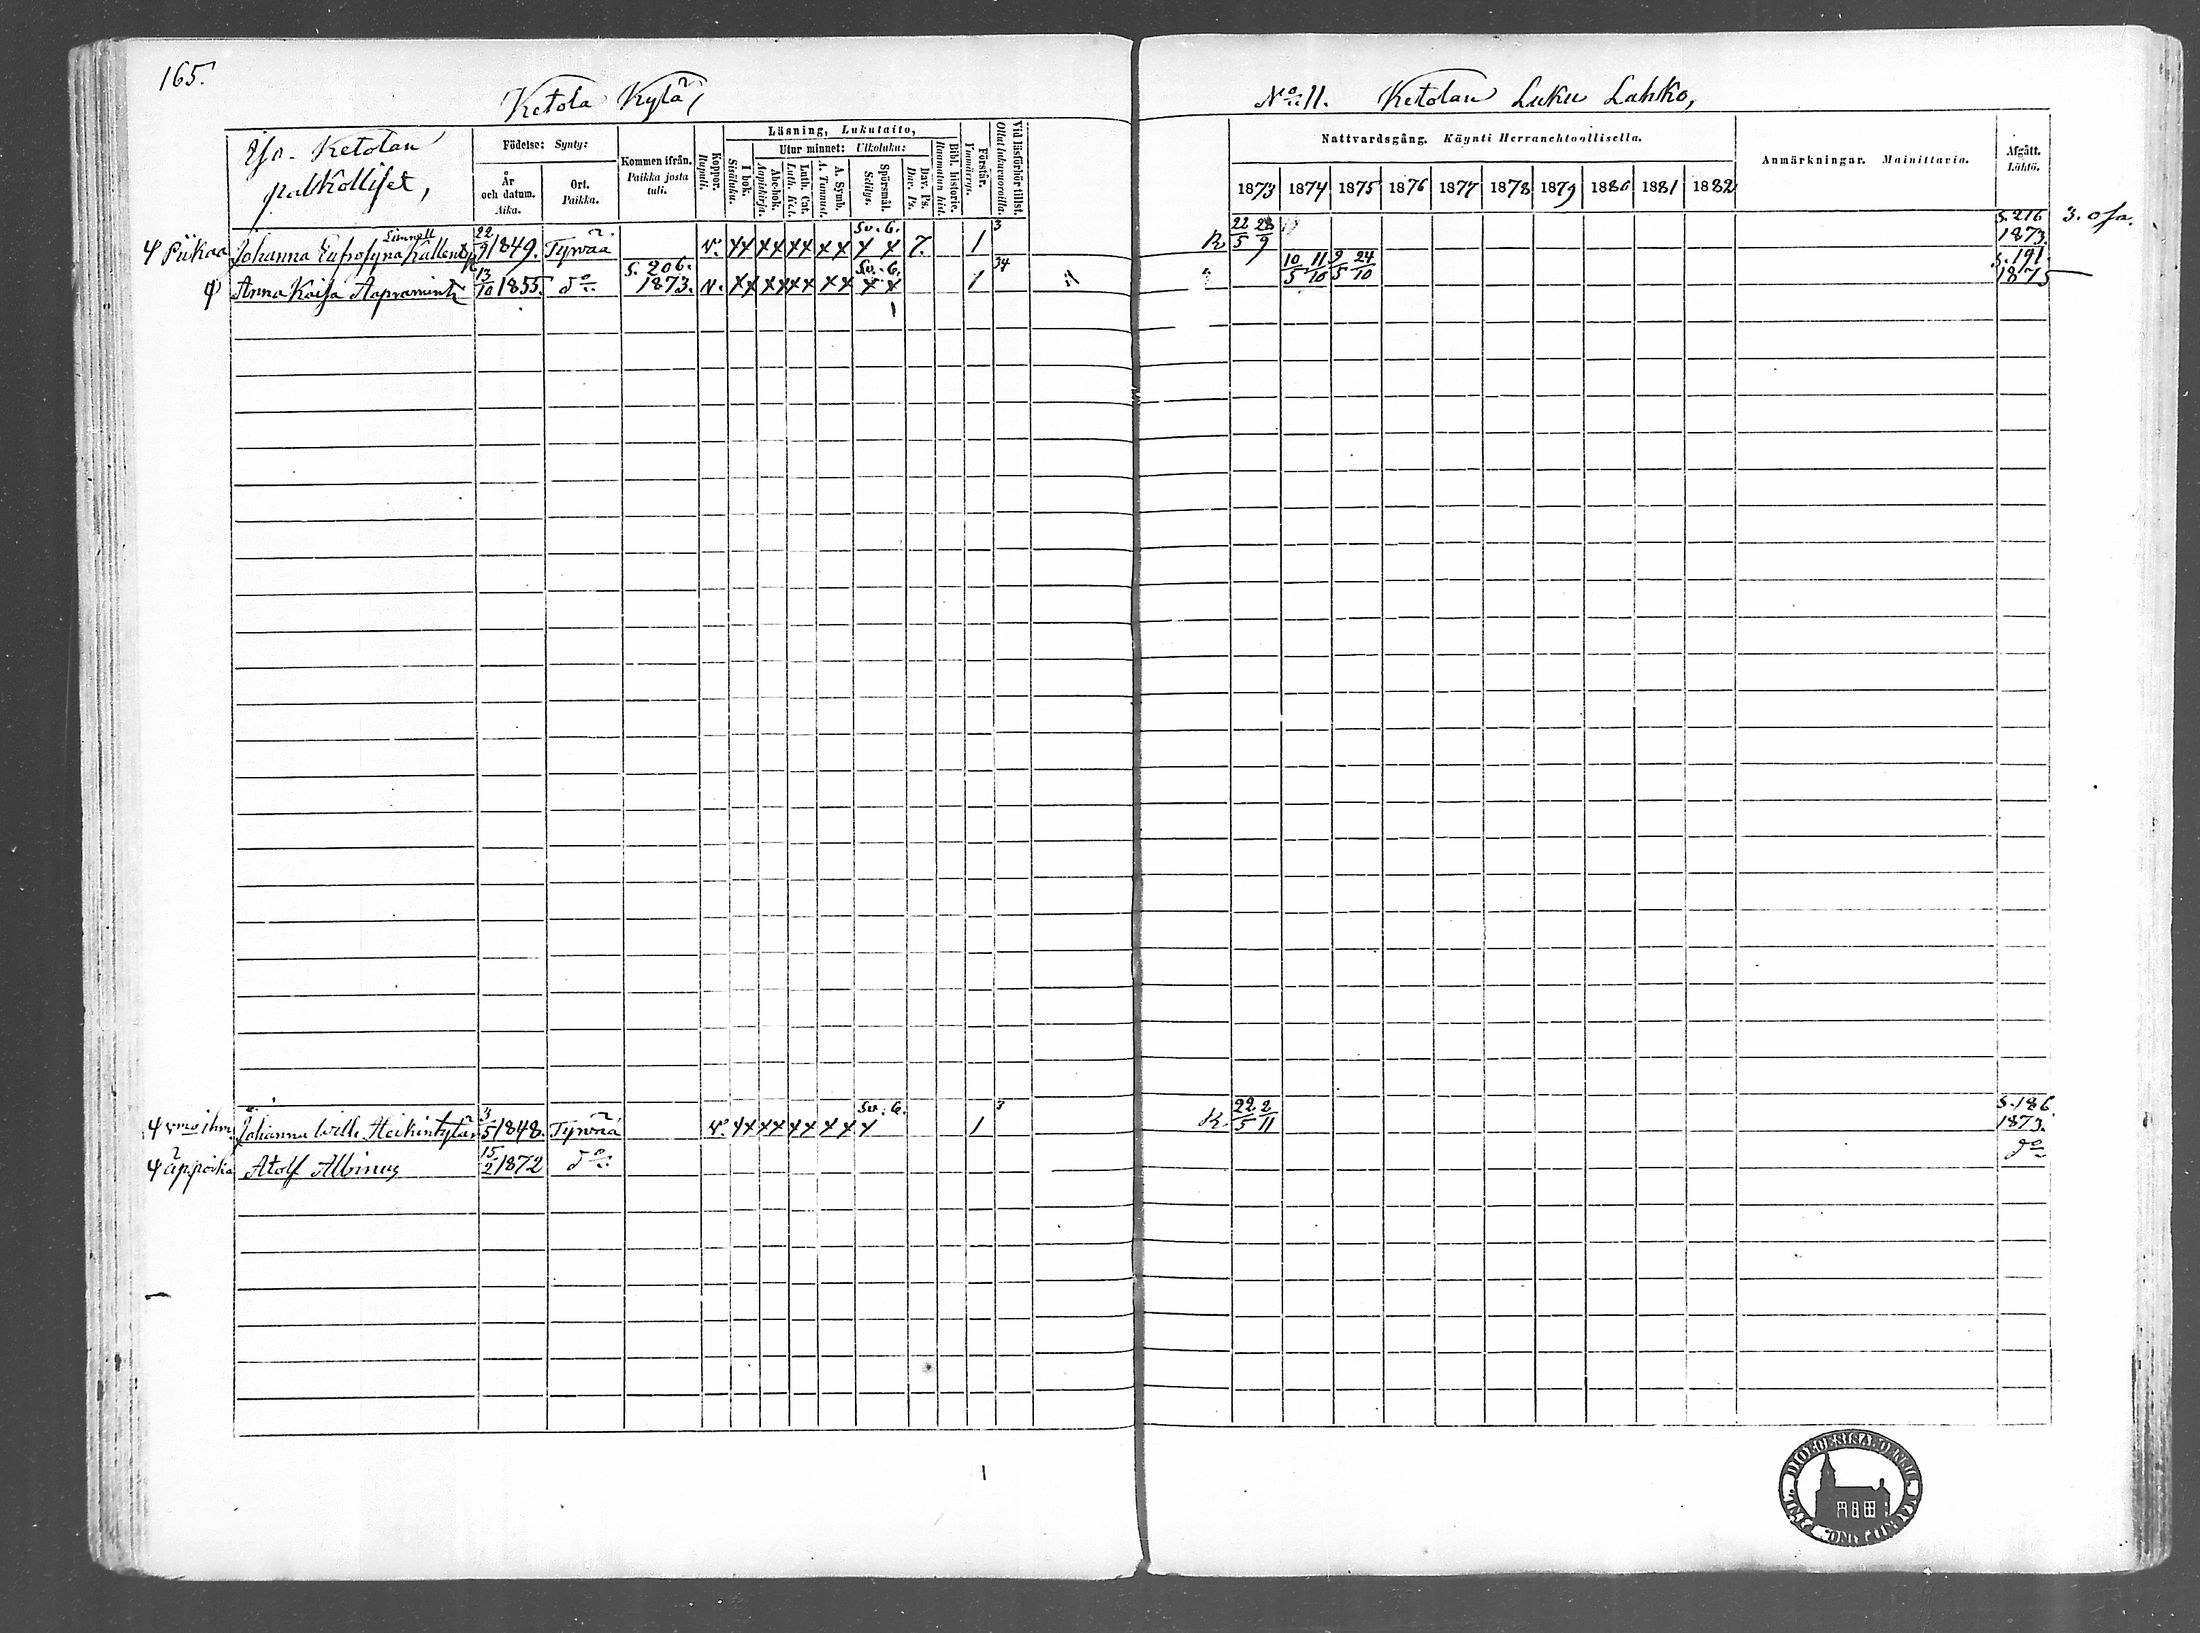 165.
Ketola Kylä,
No 11. Ketolan Luku Lahko,
Yso-Ketolan
palkolliset,
Födelse: Synty:
År
och datum.
Aika.
Ort.
Paikka.
Kommen ifrån.
Paikka josta
tuli.
Koppor.
Rupuli.
Läsning, Lukutaito,
I bok.
Sisäluku.
Utur minnet: Ulkoluku:
Abc-bok.
Aapiskirja.
Luth. Cat.
Luth. Kat.
A. Symb.
A. Tunnust.
Spörsmål.
Selitys.
Dav. Ps.
Dav. Ps.
Bibl. historie.
Raamatun hist.
Förstår.
Ymmärrys.
Vid läsförhör tillst.
Ollut lukuvuoroilla.
Nattvardsgång. Käynti Herranehtoollisella.
1873 1874 1875 1876 1877 1878 1879 1880 1881 1882
Anmärkningar. Mainittavia.
Afgått.
Lähtö.
Piikaa Johanna Eufrosyna Kallentyt 22/9 1849. Tyrvää v. xx xx xx xx Sv. 6. x x 7. 1 3 R 22/5 28/9 S. 216 1873. 3. osa.
Anna Kaisa Aapramint 13/10 1855. do S. 206. 1873. v. xx xx xx xx Sv. 6. x x 1 34 10/5 11/10 9/5 24/10 S. 191. 1875
Johanna Wilh. Heikintytär 3/5 1848. Tyrvää v. xx xx xx xx Sv. 6. x 1 3 R. 22/5 2/11 S. 186. 1873.
äpp.poika Atolf Albinus 15/2 1872 do do